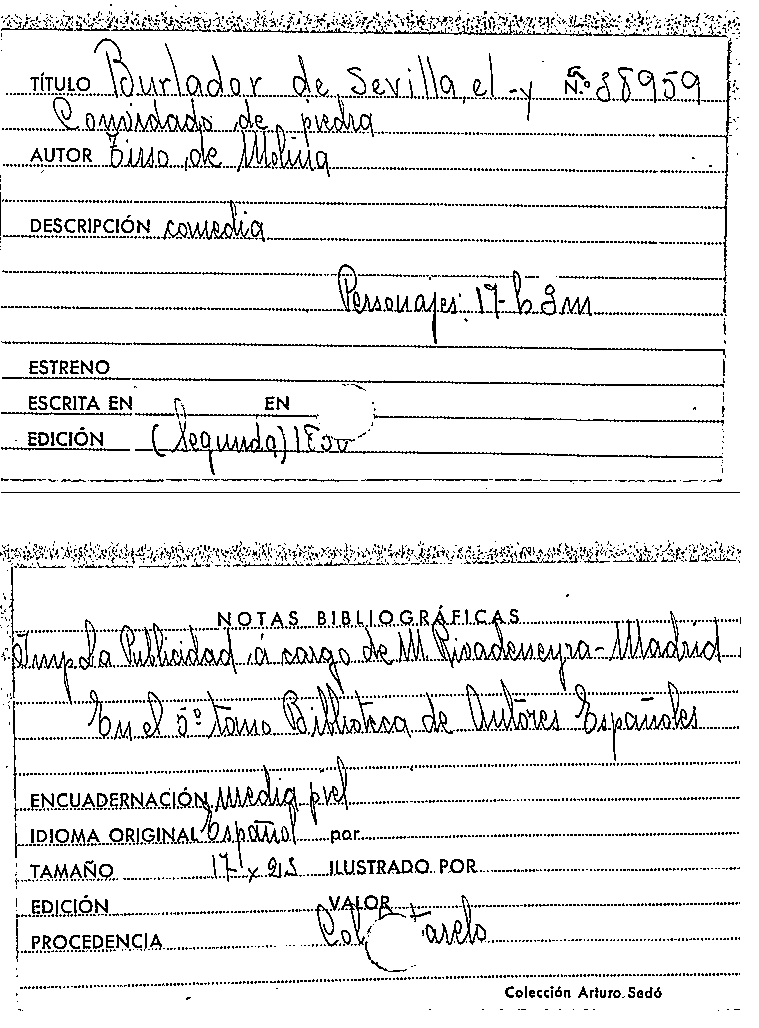 TÍTULO Burlador de Sevilla, el - y N.º 38959
Convidado de piedra
AUTOR Tirso de Molina
DESCRIPCIÓN comedia
Personajes: 17-h 3m
ESTRENO
ESCRITA EN EN
EDICIÓN (Segunda) 1850
NOTAS BIBLIOGRÁFICAS
Imp La Publicidad á cargo de M. Rivadeneyra - Madrid
En el 5º tomo Biblioteca de Autores Españoles
ENCUADERNACIÓN media piel
IDIOMA ORIGINAL Español por
TAMAÑO 17 x 25 ILUSTRADO POR
EDICIÓN VALOR
PROCEDENCIA Col Cotarelo
Colección Arturo Sedó